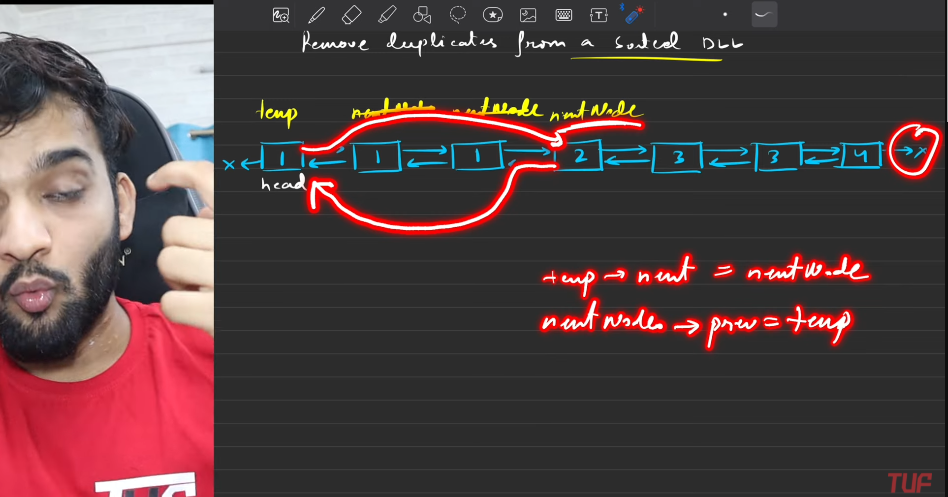 Remove duplicates from a sorted DLL
temp nextNode nextNode nextNode
x 1 1 1 2 3 3 4 x
head
temp → next = nextNode
nextNode → prev = temp
TUF